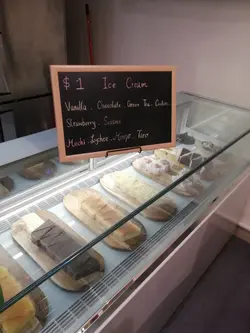 $1 Ice Cream
Vanilla. Chocolate. Green Tea.
Strawberry.
Mochi. Lychee. Mango. Taro.